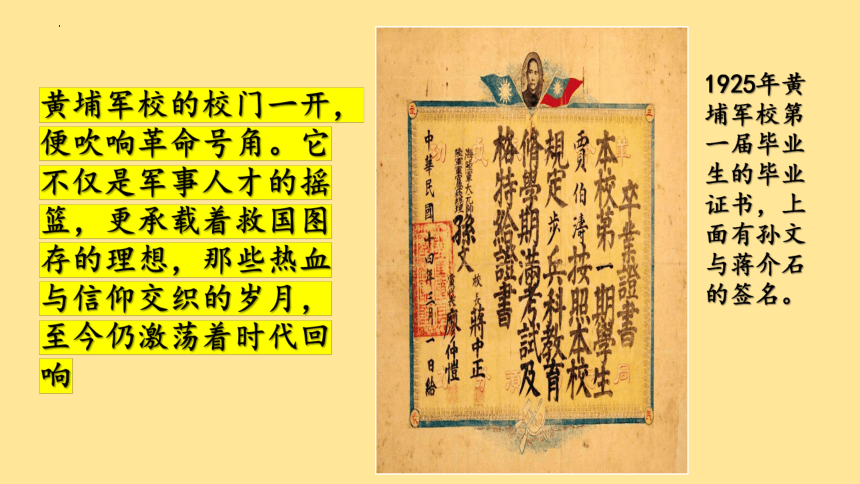 黄埔军校的校门一开，
便吹响革命号角。它
不仅是军事人才的摇
篮，更承载着救国图
存的理想，那些热血
与信仰交织的岁月，
至今仍激荡着时代回
响
卒業證書
本校第一期學生
賈伯濤按照本校
規定步兵科教育
脩學期滿考試及
格特給證書
海陸軍大元帥
陸軍軍官學校總理
孫文
校長蔣中正
黨代表廖仲愷
中華民國十四年三月一日給
1925年黄
埔军校第
一届毕业
生的毕业
证书，上
面有孙文
与蒋介石
的签名。